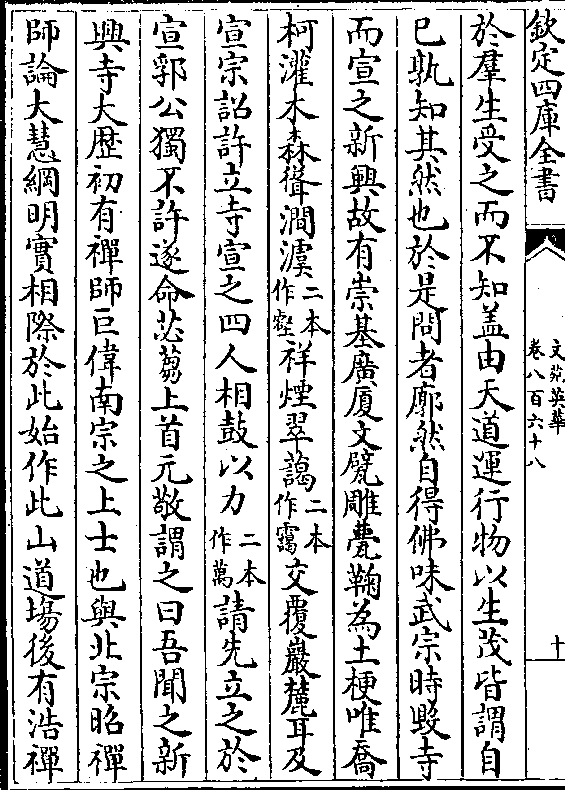 欽定四庫全書
文苑英華
卷八百六十八
十
於羣生受之而不知盖由天道運行物以生茂皆謂自
已孰知其然也於是問者廓然自得佛味武宗時毀寺
而宣之新興故有崇基廣厦文甓雕甍鞠為土梗唯喬
柯灌木森聳澗濱二本作壑祥煙翠藹二本作靄交覆巖麓耳及
宣宗詔許立寺宣之四人相鼓以力二本作萬請先立之於
宣郛公獨不許遂命苾蒭上首元敬謂之曰吾聞之新
興寺大歴初有禪師巨偉南宗之上士也與北宗昭禪
師論大慧綱明實相際於此始作此山道場後有浩禪